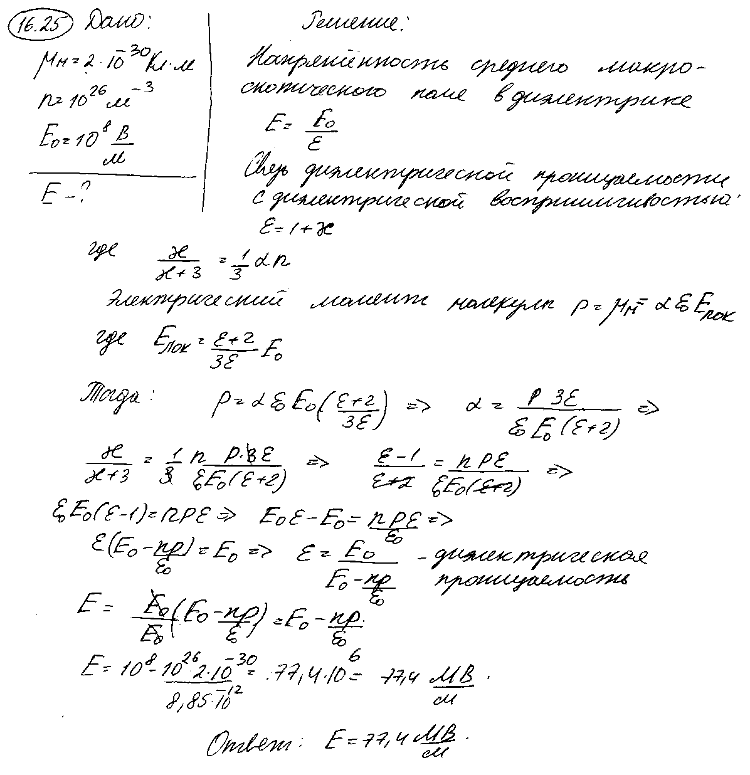 16.25 Дано:
μм = 2·10⁻³⁰ Кл·м
n = 10²⁶ м⁻³
E₀ = 10⁸ В/м
E - ?
Решение:
Напряженность среднего макро-
скопического поле в диэлектрике
E = E₀/ε
Связь диэлектрической проницаемости
с диэлектрической восприимчивостью:
ε = 1 + ϰ
где ϰ/(ϰ+3) = 1/3 αn
Электрический момент молекулы p = μм = αε₀Eлок
где Eлок = (ε+2)/3ε E₀
Тогда: p = αε₀E₀((ε+2)/3ε) => α = p 3ε/(ε₀E₀(ε+2)) =>
ϰ/(ϰ+3) = 1/3 n p·3ε/(ε₀E₀(ε+2)) => (ε-1)/(ε+2) = npε/(ε₀E₀(ε+2)) =>
ε₀E₀(ε-1) = npε => E₀ε - E₀ = npε/ε₀ =>
ε(E₀ - np/ε₀) = E₀ => ε = E₀/(E₀ - np/ε₀) - диэлектрическая
проницаемость
E = E₀/E₀ (E₀ - np/ε₀) = E₀ - np/ε₀.
E = 10⁸ - 10²⁶·2·10⁻³⁰/8,85·10⁻¹² = 77,4·10⁶ = 77,4 МВ/м.
Ответ: E = 77,4 МВ/м.